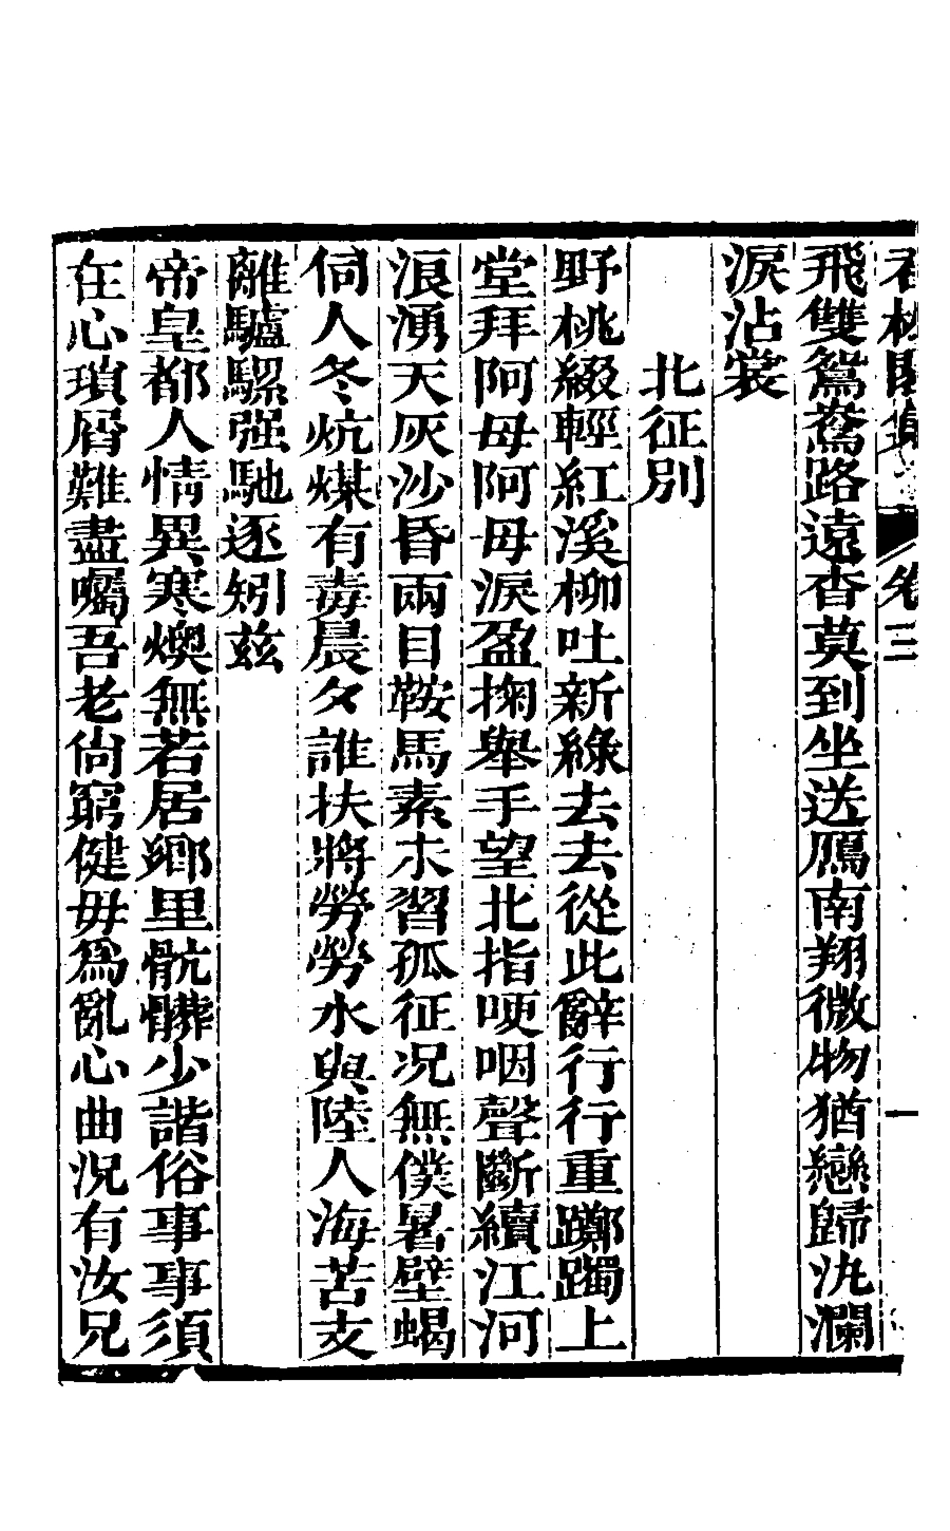 卷三
一
飛雙鴛鴦路遠杳莫到坐送鴈南翔微物猶戀歸汍瀾
淚沾裳
北征別
野桃綴輕紅溪柳吐新綠去去從此辭行行重躑躅上
堂拜阿母阿母淚盈掬舉手望北指哽咽聲斷續江河
浪湧天灰沙昏兩目鞍馬素未習孤征况無僕暑壁蝎
伺人冬炕煤有毒晨夕誰扶將勞勞水與陸人海苦支
離驢騾强馳逐矧茲
帝皇都人情異寒燠無若居鄉里骯髒少諧俗事事須
在心瑣屑難盡囑吾老尙窮健毋爲亂心曲況有汝兄